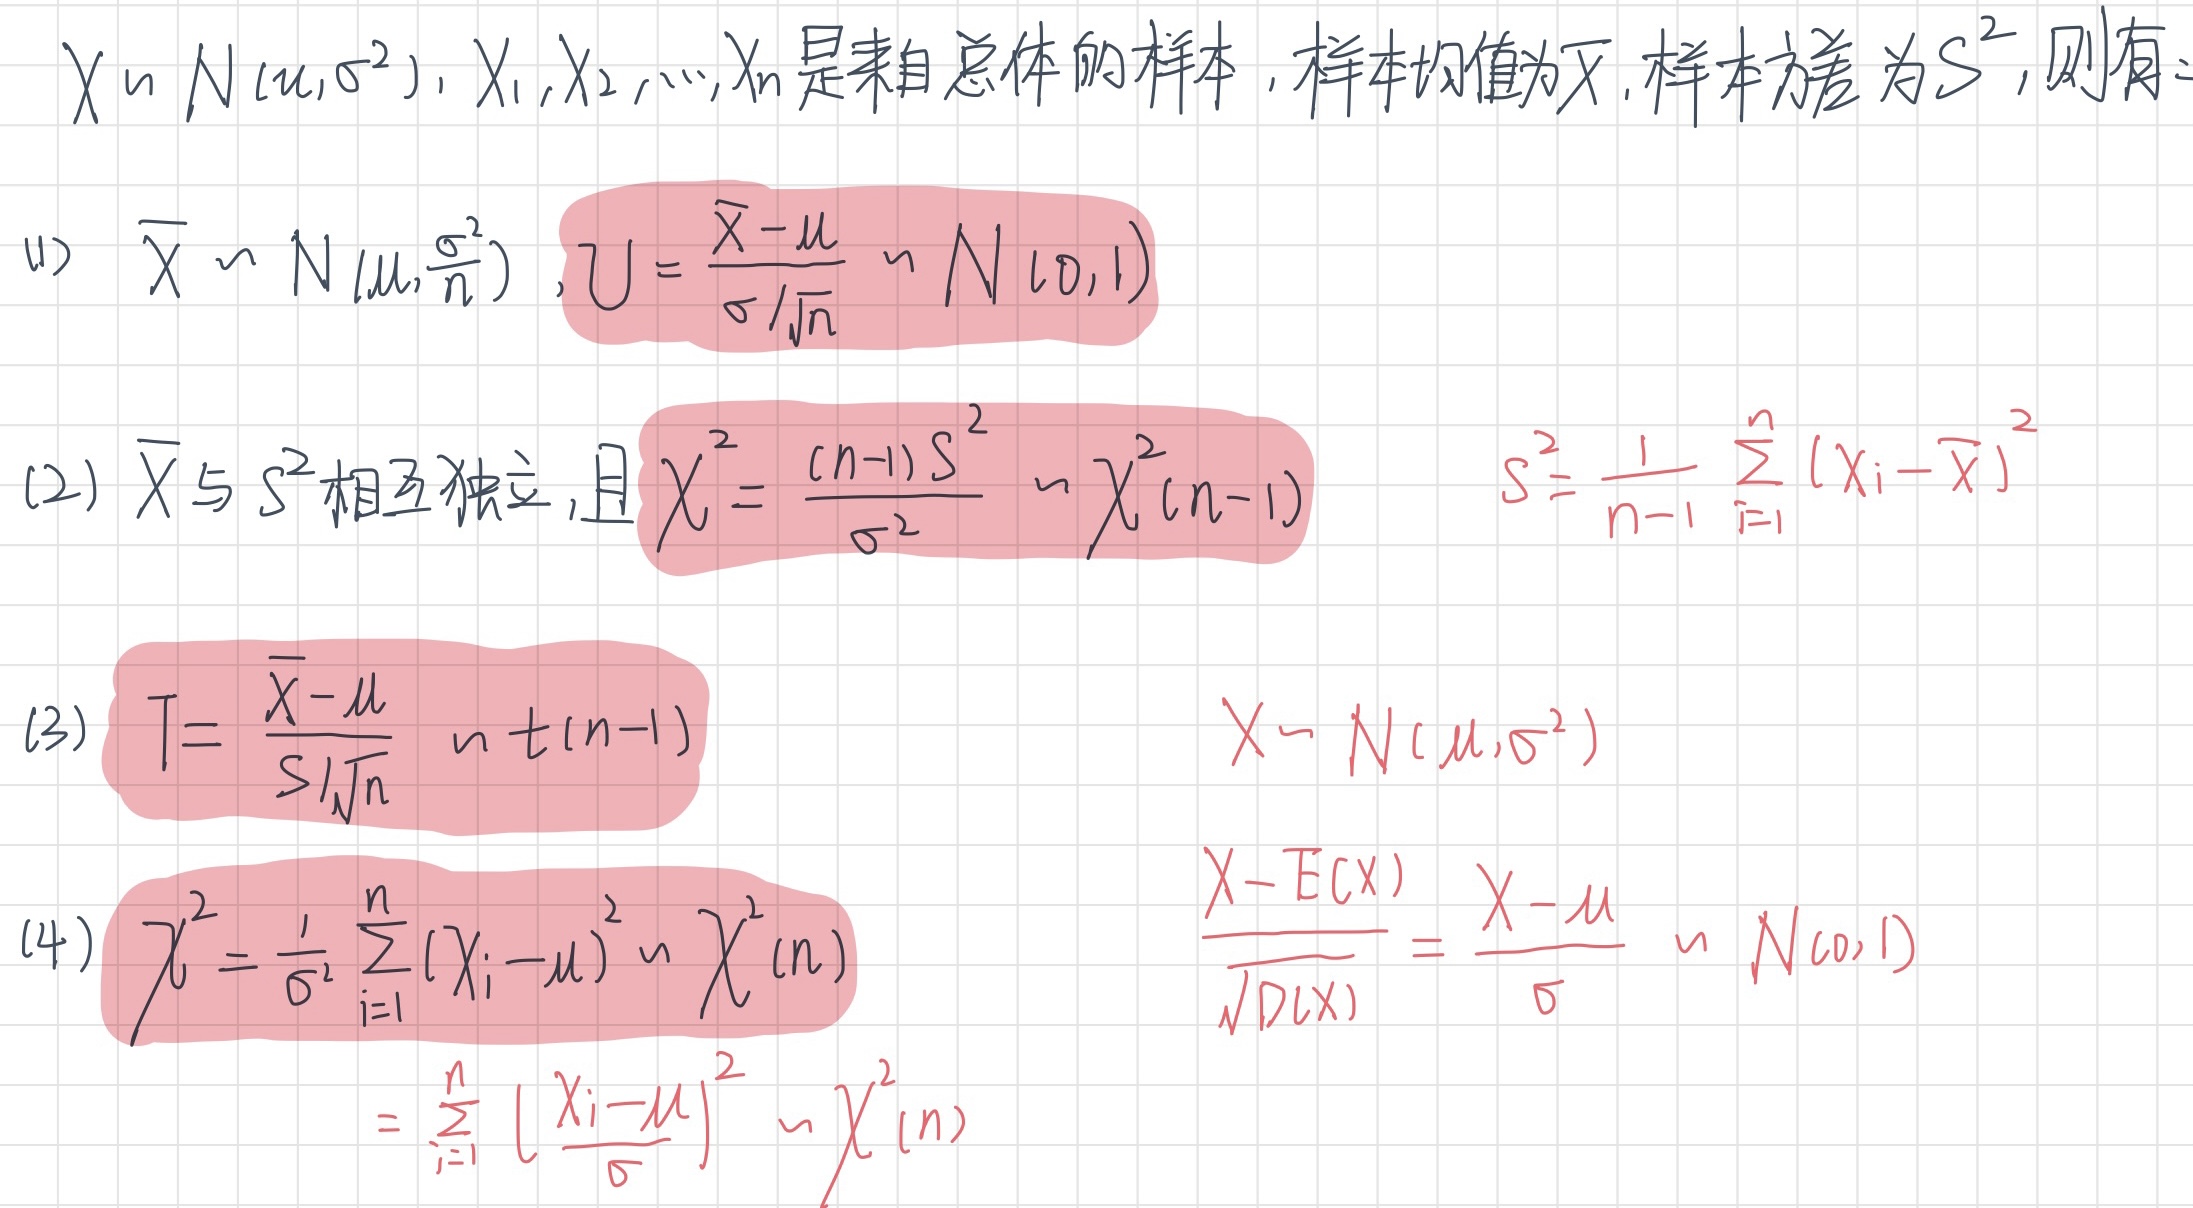 X ~ N(μ,σ²), X₁,X₂,…,Xn是来自总体的样本,样本均值为X̅,样本方差为S²,则有:
(1) X̅ ~ N(μ,σ²/n), U = (X̅-μ)/(σ/√n) ~ N(0,1)
(2) X̅与S²相互独立,且 χ² = (n-1)S²/σ² ~ χ²(n-1)
S² = 1/(n-1) ∑ᵢ₌₁ⁿ (Xi-X̅)²
(3) T = (X̅-μ)/(S/√n) ~ t(n-1)
X ~ N(μ,σ²)
(4) χ² = 1/σ² ∑ᵢ₌₁ⁿ (Xi-μ)² ~ χ²(n)
(X-E(X))/√D(X) = (X-μ)/σ ~ N(0,1)
= ∑ᵢ₌₁ⁿ ((Xi-μ)/σ)² ~ χ²(n)